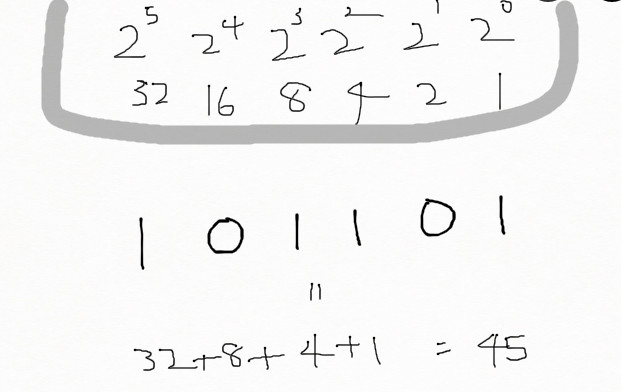 2⁵ 2⁴ 2³ 2² 2¹ 2⁰
32 16 8 4 2 1
1 0 1 1 0 1
=
32+8+4+1 = 45